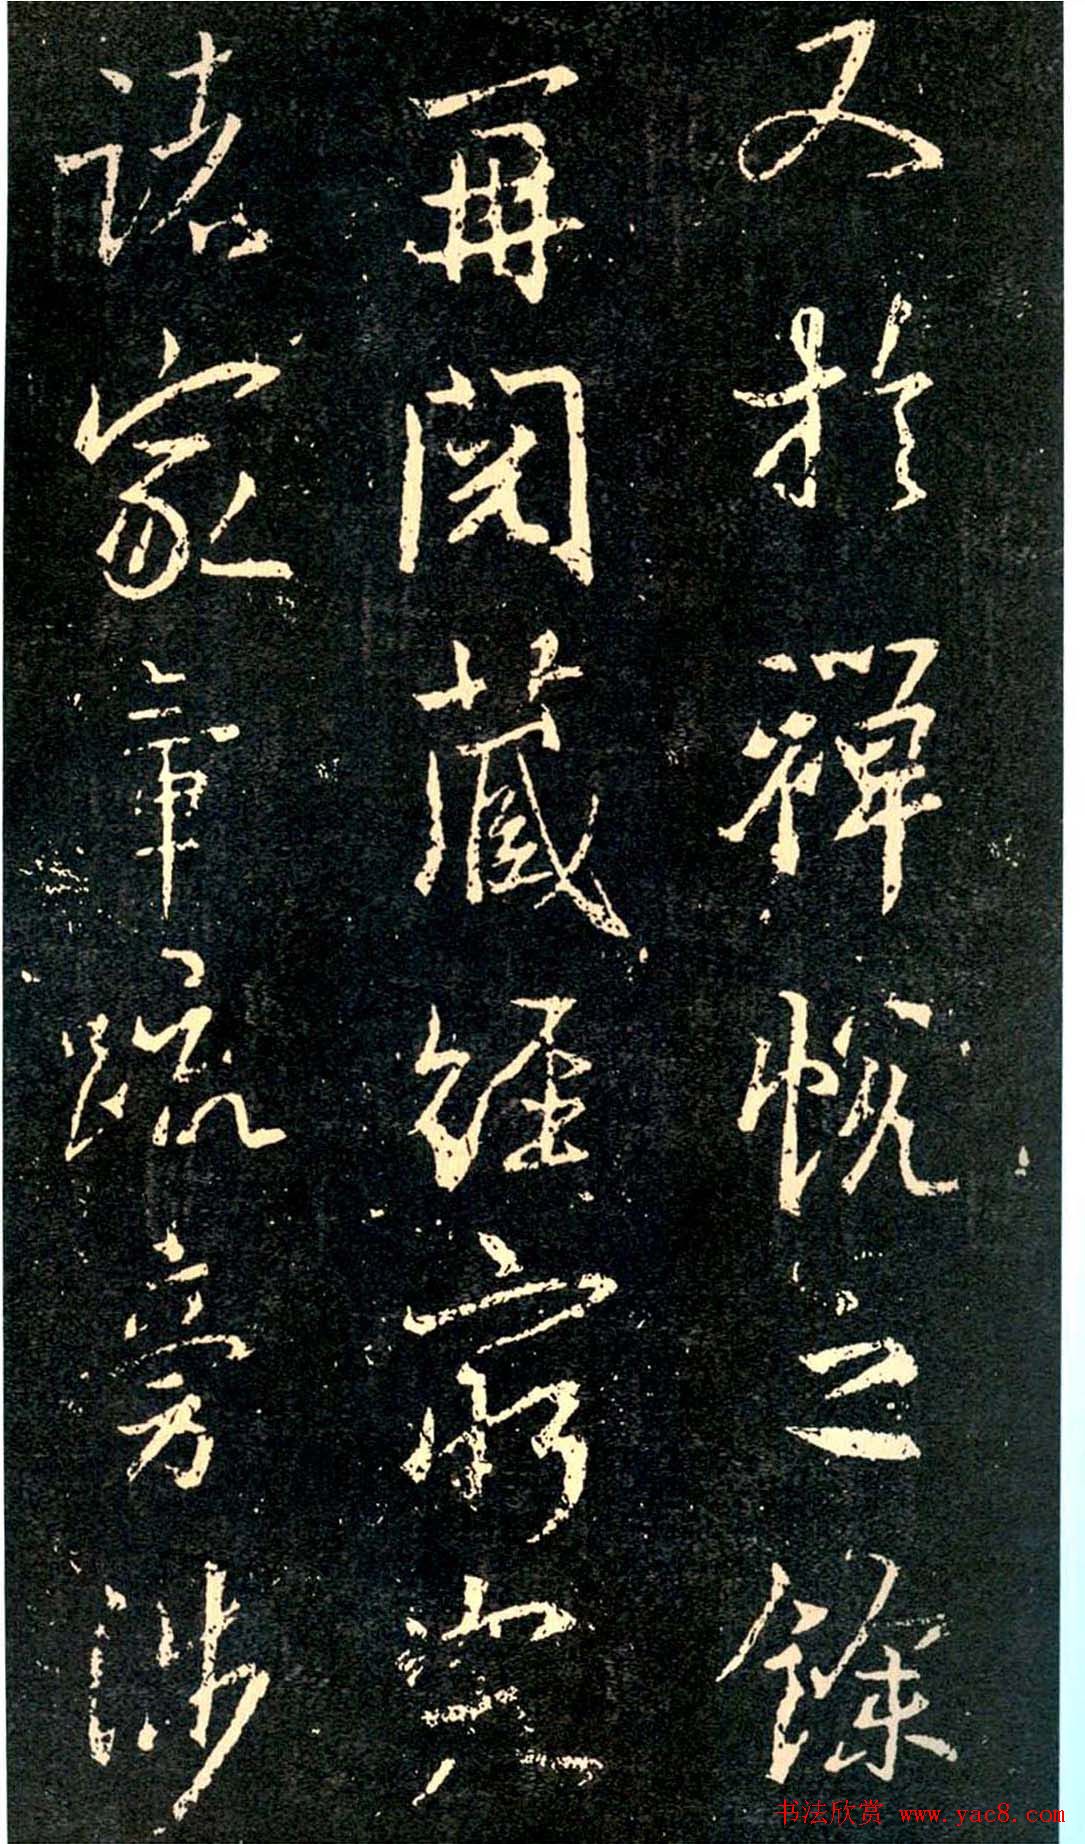 又於禪悦之餘
再閲藏經窮
諸家章疏旁涉
书法欣赏 www.yac8.com